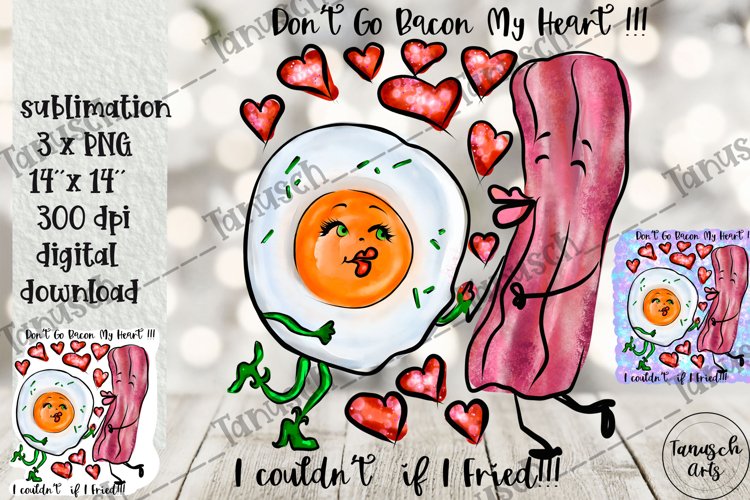 Don't Go Bacon My Heart !!!
sublimation
3 x PNG
14" x 14"
300 dpi
digital
download
I couldn't if I Fried!!!
Don't Go Bacon My Heart !!!
I couldn't if I Fried!!!
Don't Go Bacon My Heart !!!
I couldn't if I Fried!!!
Tanusch
Tanusch
Tanusch
Tanusch
Tanusch
Tanusch
Tanusch
Tanusch
Arts